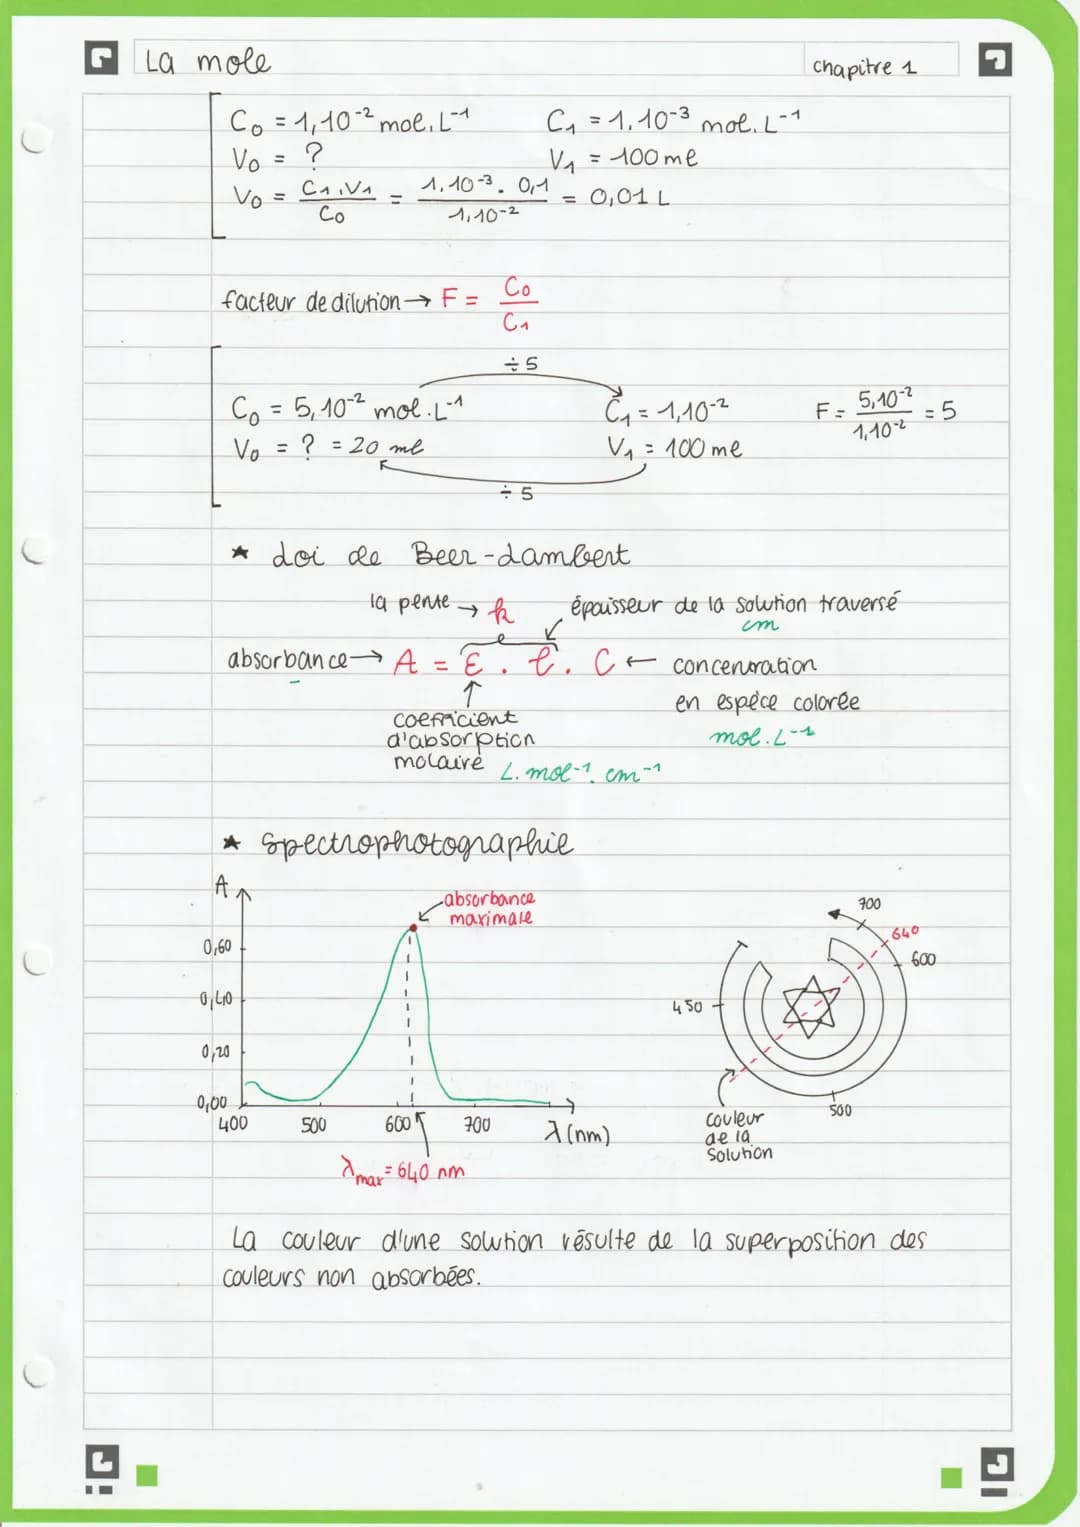 La mole
chapitre 1
C₀ = 1,10⁻² mol.L⁻¹ C₁ = 1.10⁻³ mol.L⁻¹
V₀ = ? V₁ = 100 ml
V₀ = C₁.V₁ / C₀ = 1.10⁻³. 0,1 / 1,10⁻² = 0,01 L
facteur de dilution → F = C₀ / C₁
÷ 5
C₀ = 5,10⁻² mol.L⁻¹ C₁ = 1,10⁻² F = 5,10⁻² / 1,10⁻² = 5
V₀ = ? = 20 ml V₁ = 100 ml
÷ 5
★ Loi de Beer-Lambert
la pente → k épaisseur de la solution traversé
cm
absorbance → A = ε . l . C ← concentration
en espèce colorée
coefficient
d'absorption
molaire
mol.L⁻¹
L.mol⁻¹.cm⁻¹
★ Spectrophotographie
A
absorbance
maximale
0,60
0,40
0,20
0,00
400 500 600 700 λ(nm)
λmax = 640 nm
700
640
600
450
500
couleur
de la
solution
La couleur d'une solution résulte de la superposition des
couleurs non absorbées.